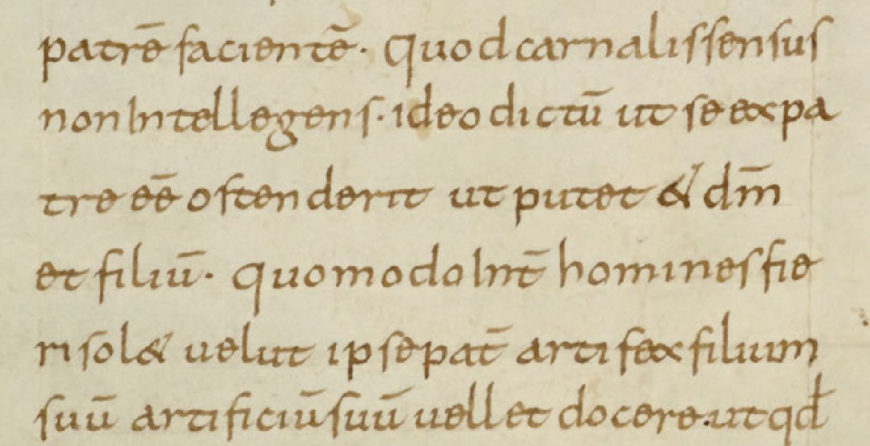 patrē facientē. Quod carnalis sensus
non intellegens. ideo dictū ut se ex pa
tre eē ostenderit ut putet & dm̄
et filiū. quomodo int̄ homines fie
ri sol& uelut ipse pat̄ artifex filium
suū artificiū suū uellet docere. ut qđ